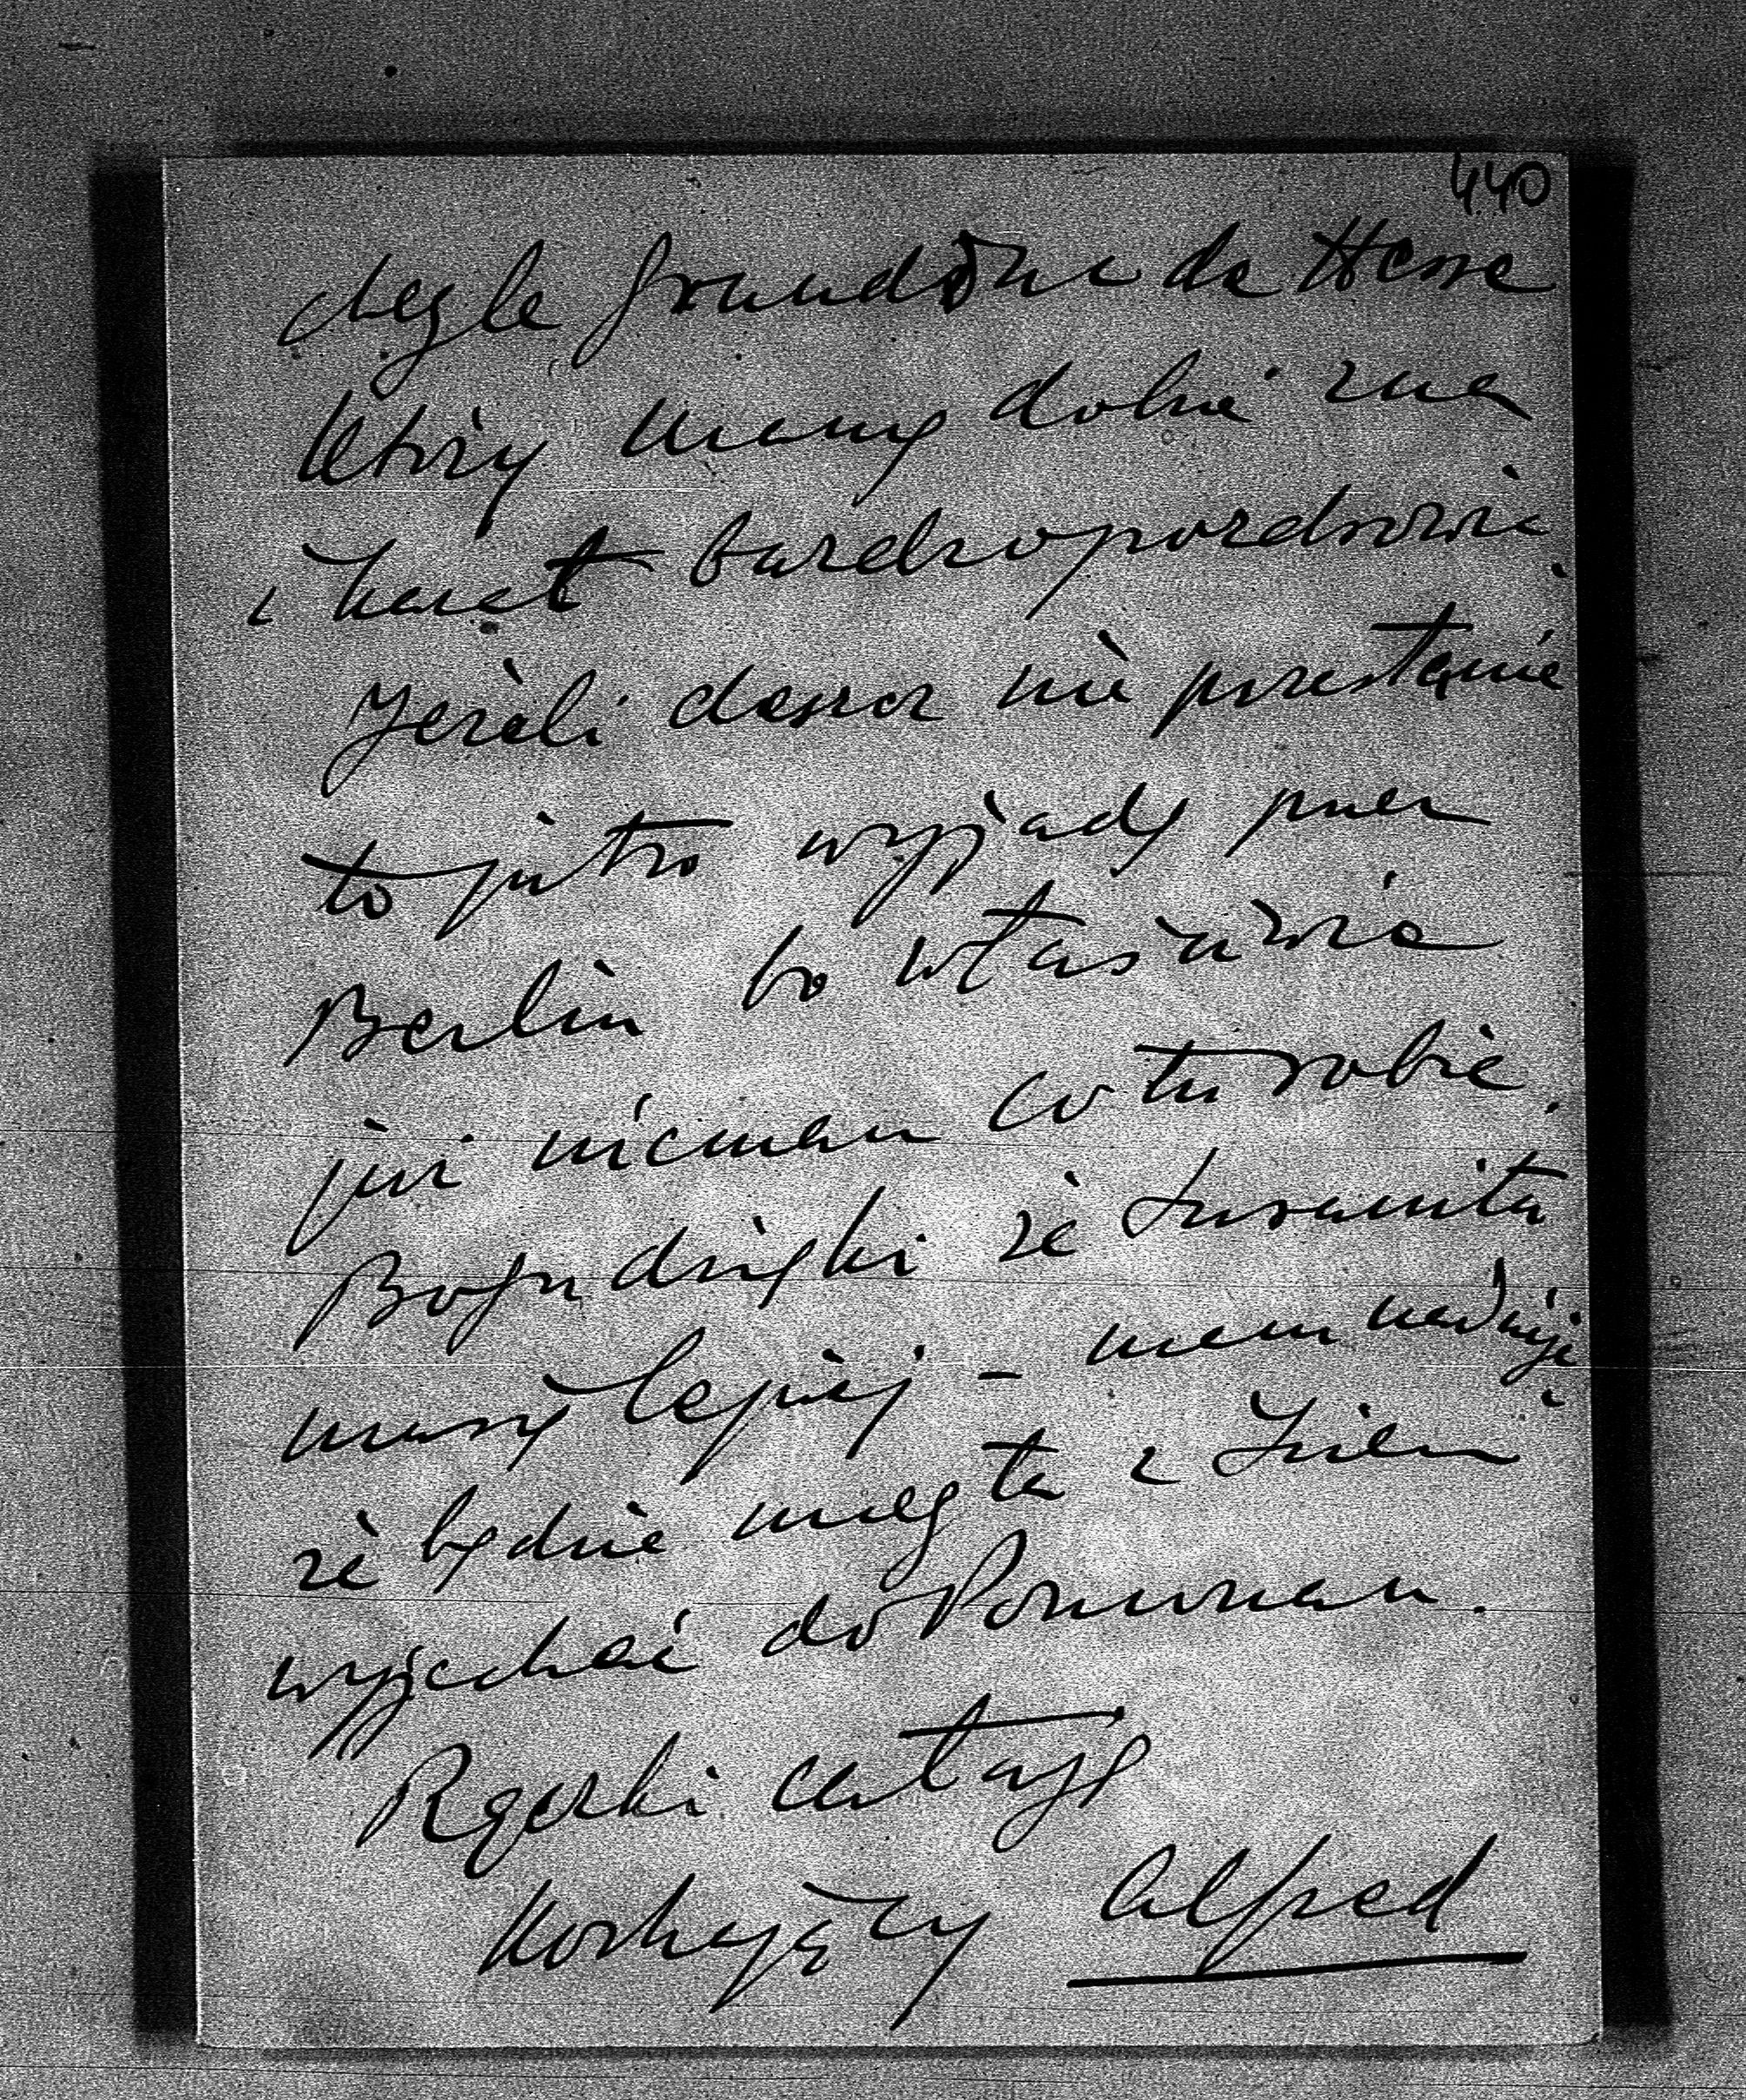 440
ciągle Grandduc de Hesse
który Mamę dobrze zna
i kazał bardzo pozdrowić
Jeżeli deszcz nie przestanie
to jutro wyjadę przez
Berlin bo właściwie
już niemam co tu robić.
Bogu dzięki że
muszę lepiej – mam nadzieję
że będzie mogła z
wyjechać do Poznunan.
Rączki całuję
kochający Alfred